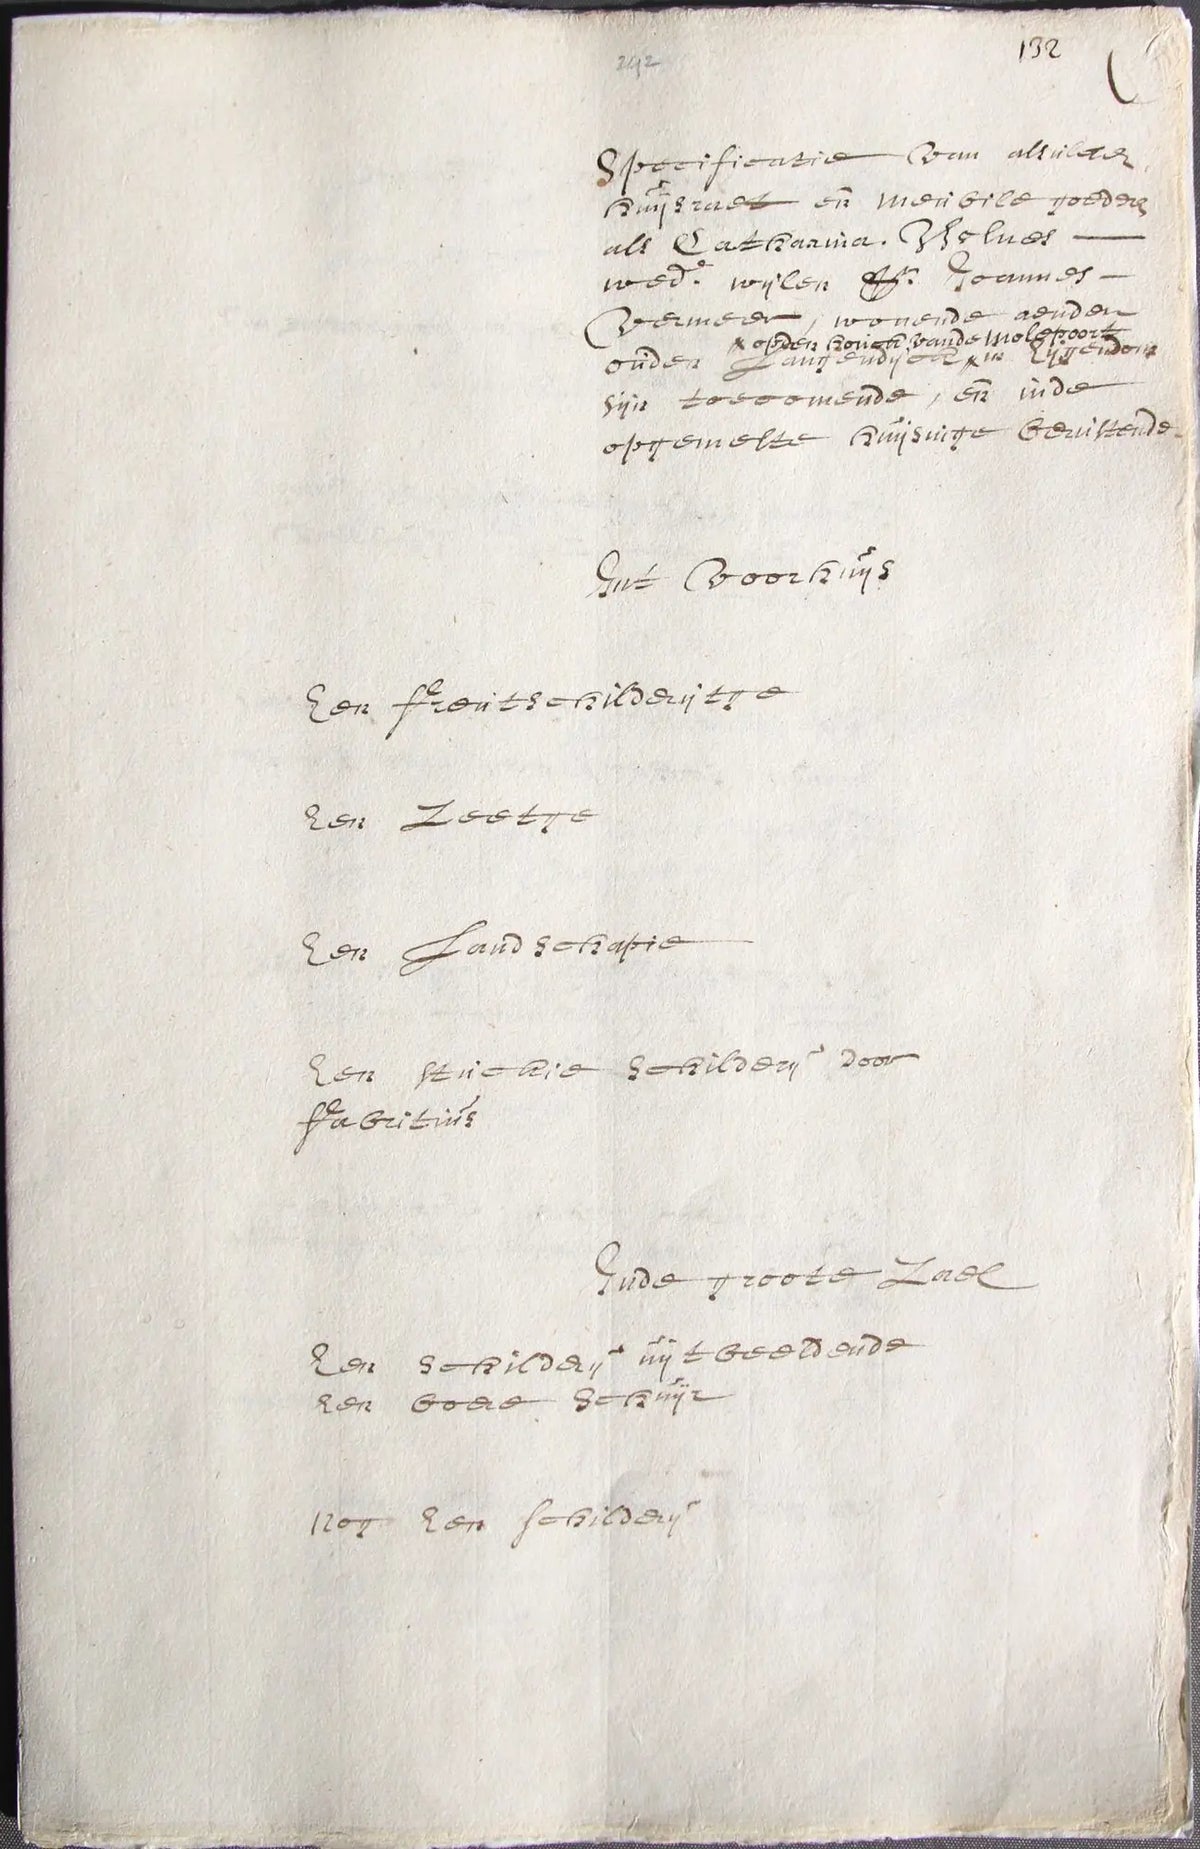 292
132
Specificatie van alsulcke
huijsraet en meubile goedere
als Catharina Bholnes
wede. wijlen Sr. Joannes
Vermeer, wonende aenden
x opden houck vande molepoort
ouden Langendijck x in Eijgendom
sijn toecomende, en inde
opgemelte huijsinge berustende
Int Voorhuijs
Een fruitschilderijtge
Een Zeetge
Een Landschapie
Een stuckie schilderij door
Fabritius
Inde groote Zael
Een schilderij uijtbeeldende
een boere schuijr
Nog Een schilderij